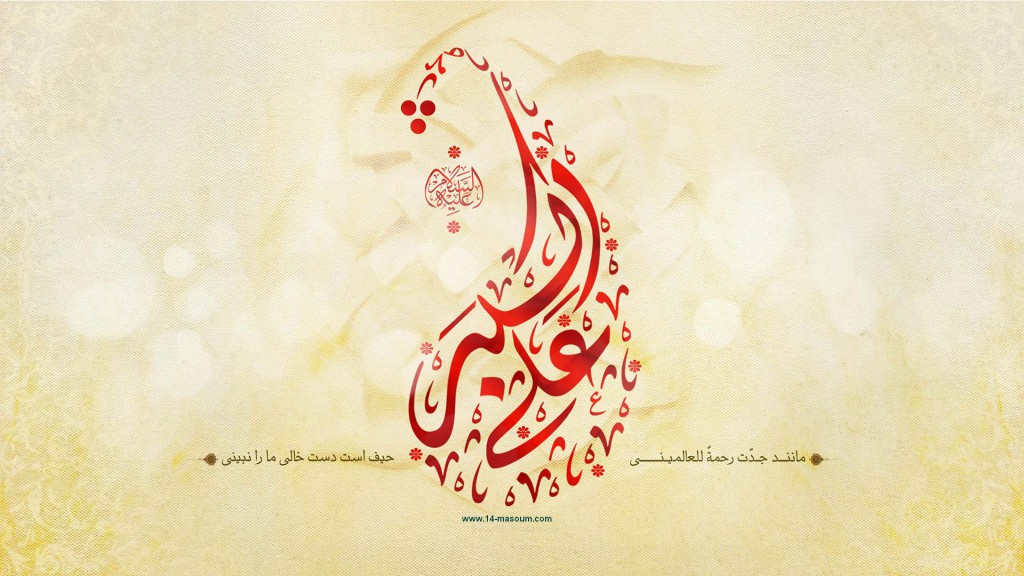 علی اکبر
علیه السلام
مانند جدّت رحمةٌ للعالمینی
حیف است دست خالی ما را نبینی
www.14-masoum.com